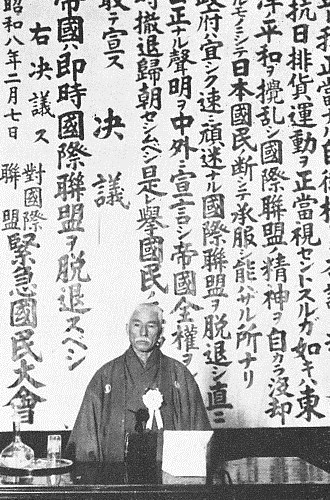 抗日排貨運動ヲ正當視セントスルガ如キハ東
洋平和ヲ攪乱シ國際聯盟ノ精神ヲ自カラ沒却
ルモノニシテ日本國民ノ断ジテ承服シ能ハザル所ナリ
政府ハ宜シク速ニ頑迷ナル國際聯盟ヲ脱退シ直ニ
正ナル聲明ヲ中外ニ宣言シ帝國全權ヲ
時撤退歸朝セシムベシ是レ擧國民ノ
敢テ宣ス
決議
帝國ハ即時國際聯盟ヲ脱退スベシ
右決議ス
昭和八年二月七日
對國際聯盟
緊急國民大會